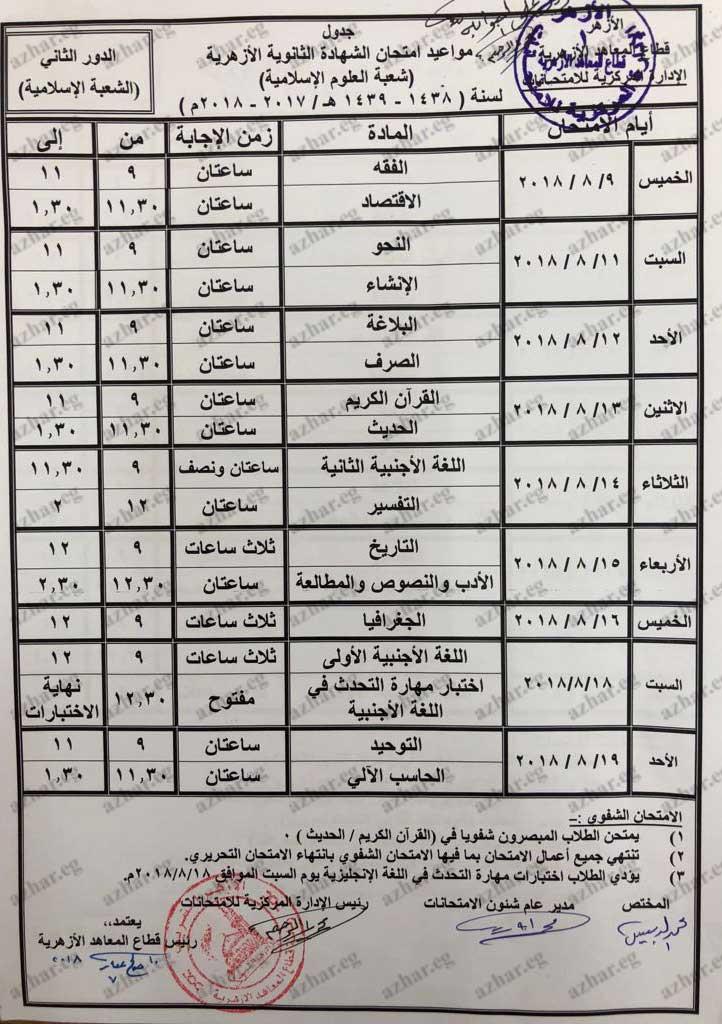 الأزهر
قطاع المعاهد الأزهرية
الإدارة المركزية للامتحانات
جدول
مواعيد امتحان الشهادة الثانوية الأزهرية
(شعبة العلوم الإسلامية)
لسنة ( ١٤٣٨ - ١٤٣٩ هـ / ٢٠١٧ - ٢٠١٨م )
الدور الثاني
(الشعبة الإسلامية)
أيام الامتحان المادة زمن الإجابة من إلى
الخميس ٩/ ٨ / ٢٠١٨ الفقه ساعتان ٩ ١١
الاقتصاد ساعتان ١١,٣٠ ١,٣٠
السبت ١١/ ٨ / ٢٠١٨ النحو ساعتان ٩ ١١
الإنشاء ساعتان ١١,٣٠ ١,٣٠
الأحد ١٢/ ٨ / ٢٠١٨ البلاغة ساعتان ٩ ١١
الصرف ساعتان ١١,٣٠ ١,٣٠
الاثنين ١٣/ ٨ / ٢٠١٨ القرآن الكريم ساعتان ٩ ١١
الحديث ساعتان ١١,٣٠ ١,٣٠
الثلاثاء ١٤/ ٨ / ٢٠١٨ اللغة الأجنبية الثانية ساعتان ونصف ٩ ١١,٣٠
التفسير ساعتان ١٢ ٢
الأربعاء ١٥/ ٨ / ٢٠١٨ التاريخ ثلاث ساعات ٩ ١٢
الأدب والنصوص والمطالعة ساعتان ١٢,٣٠ ٢,٣٠
الخميس ١٦/ ٨ / ٢٠١٨ الجغرافيا ثلاث ساعات ٩ ١٢
السبت ٢٠١٨/٨/١٨ اللغة الأجنبية الأولى ثلاث ساعات ٩ ١٢
اختبار مهارة التحدث في اللغة الأجنبية مفتوح ١٢,٣٠ نهاية الاختبارات
الأحد ١٩/ ٨ / ٢٠١٨ التوحيد ساعتان ٩ ١١
الحاسب الآلي ساعتان ١١,٣٠ ١,٣٠
الامتحان الشفوي :-
١) يمتحن الطلاب المبصرون شفويا في (القرآن الكريم / الحديث ) ٠
٢) تنتهي جميع أعمال الامتحان بما فيها الامتحان الشفوي بانتهاء الامتحان التحريري.
٣) يؤدي الطلاب اختبارات مهارة التحدث في اللغة الإنجليزية يوم السبت الموافق ٢٠١٨/٨/١٨م.
المختص مدير عام شئون الامتحانات رئيس الإدارة المركزية للامتحانات
يعتمد،،
رئيس قطاع المعاهد الأزهرية
azhar.eg